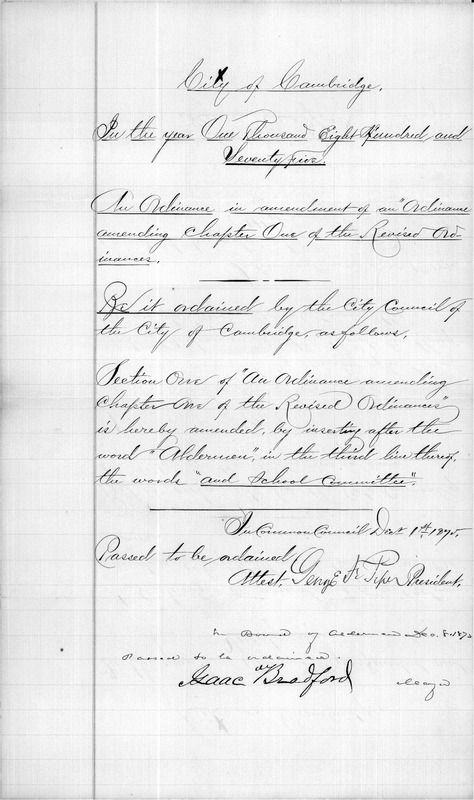 City of Cambridge.
In the year One Thousand Eight Hundred and
Seventy five.
An Ordinance in amendment of an "Ordinance
amending Chapter One of the Revised Ord-
inances.
Be it ordained by the City Council of
the City of Cambridge, as follows,
Section One of "An Ordinance amending
Chapter One of the Revised Ordinances"
is hereby amended, by inserting after the
word "Aldermen", in the third line thereof,
the words "and School Committee".
In Common Council Dec 1st 1875.
Passed to be ordained
Attest, George F. Piper President.
In Board of Aldermen Dec. 8. 1875
Passed to be ordained.
Isaac Bradford Mayor